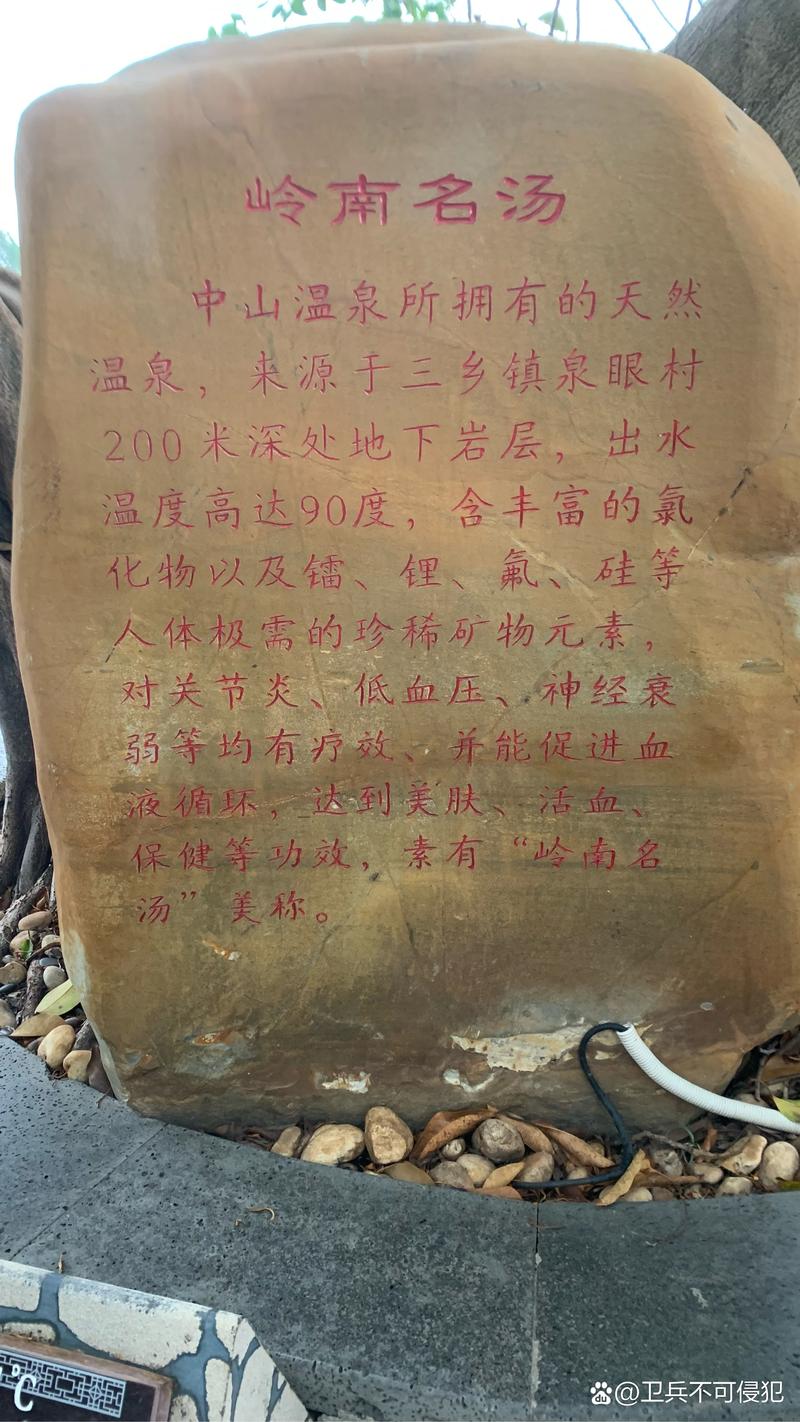 岭南名汤
中山温泉所拥有的天然
温泉，来源于三乡镇泉眼村
200米深处地下岩层，出水
温度高达90度，含丰富的氯
化物以及镭、锂、氟、硅等
人体极需的珍稀矿物元素，
对关节炎、低血压、神经衰
弱等均有疗效、并能促进血
液循环，达到美肤、活血、
保健等功效，素有“岭南名
汤”美称。
℃
@卫兵不可侵犯